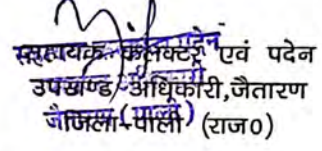 सहायक कलेक्टर एवं पदेन
उपखण्ड अधिकारी, जैतारण
जिला-पाली (राज०)